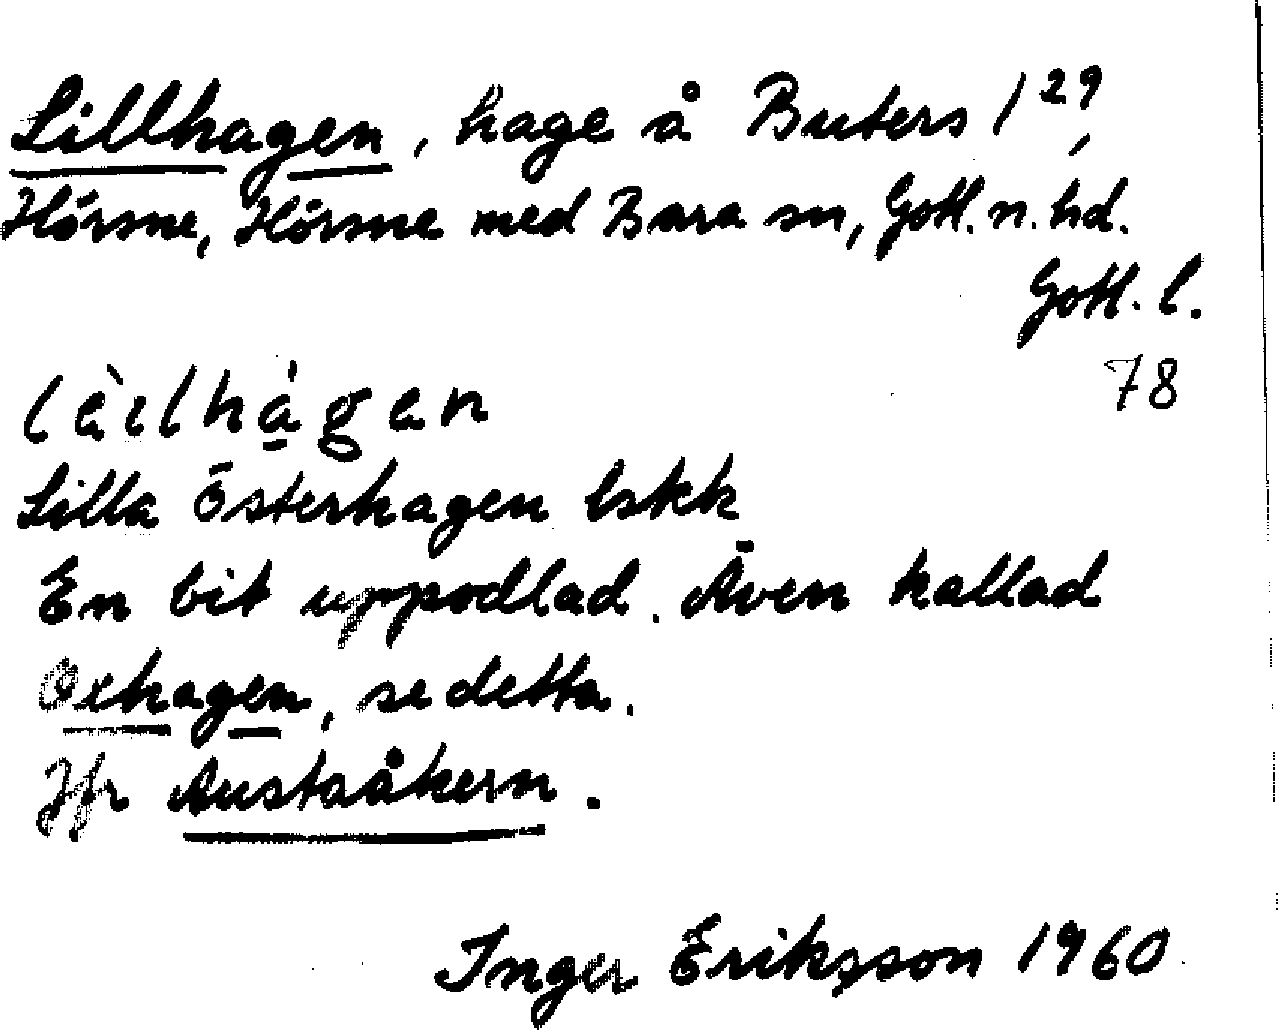 Lillhagen, hage å Buters 1²⁹,
Hörsne, Hörsne med Bara sn, Gotl. n. hd.
Gotl. l.
78
lèılhàgan
Lilla Österhagen lskk
En bit uppodlad. Även kallad
Oxhagen, se detta.
Jfr Austaåkern.
Inger Eriksson 1960